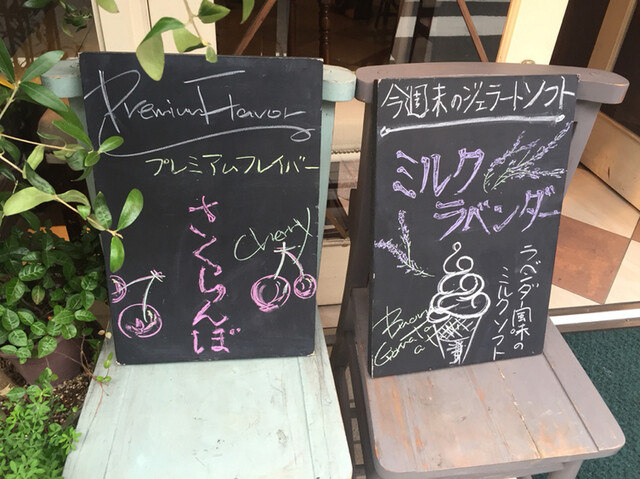 Premium Flavor
プレミアムフレイバー
さくらんぼ
Cherry
今週末のジェラートソフト
ミルク
ラベンダー
ラベンダ風味の
ミルクソフト